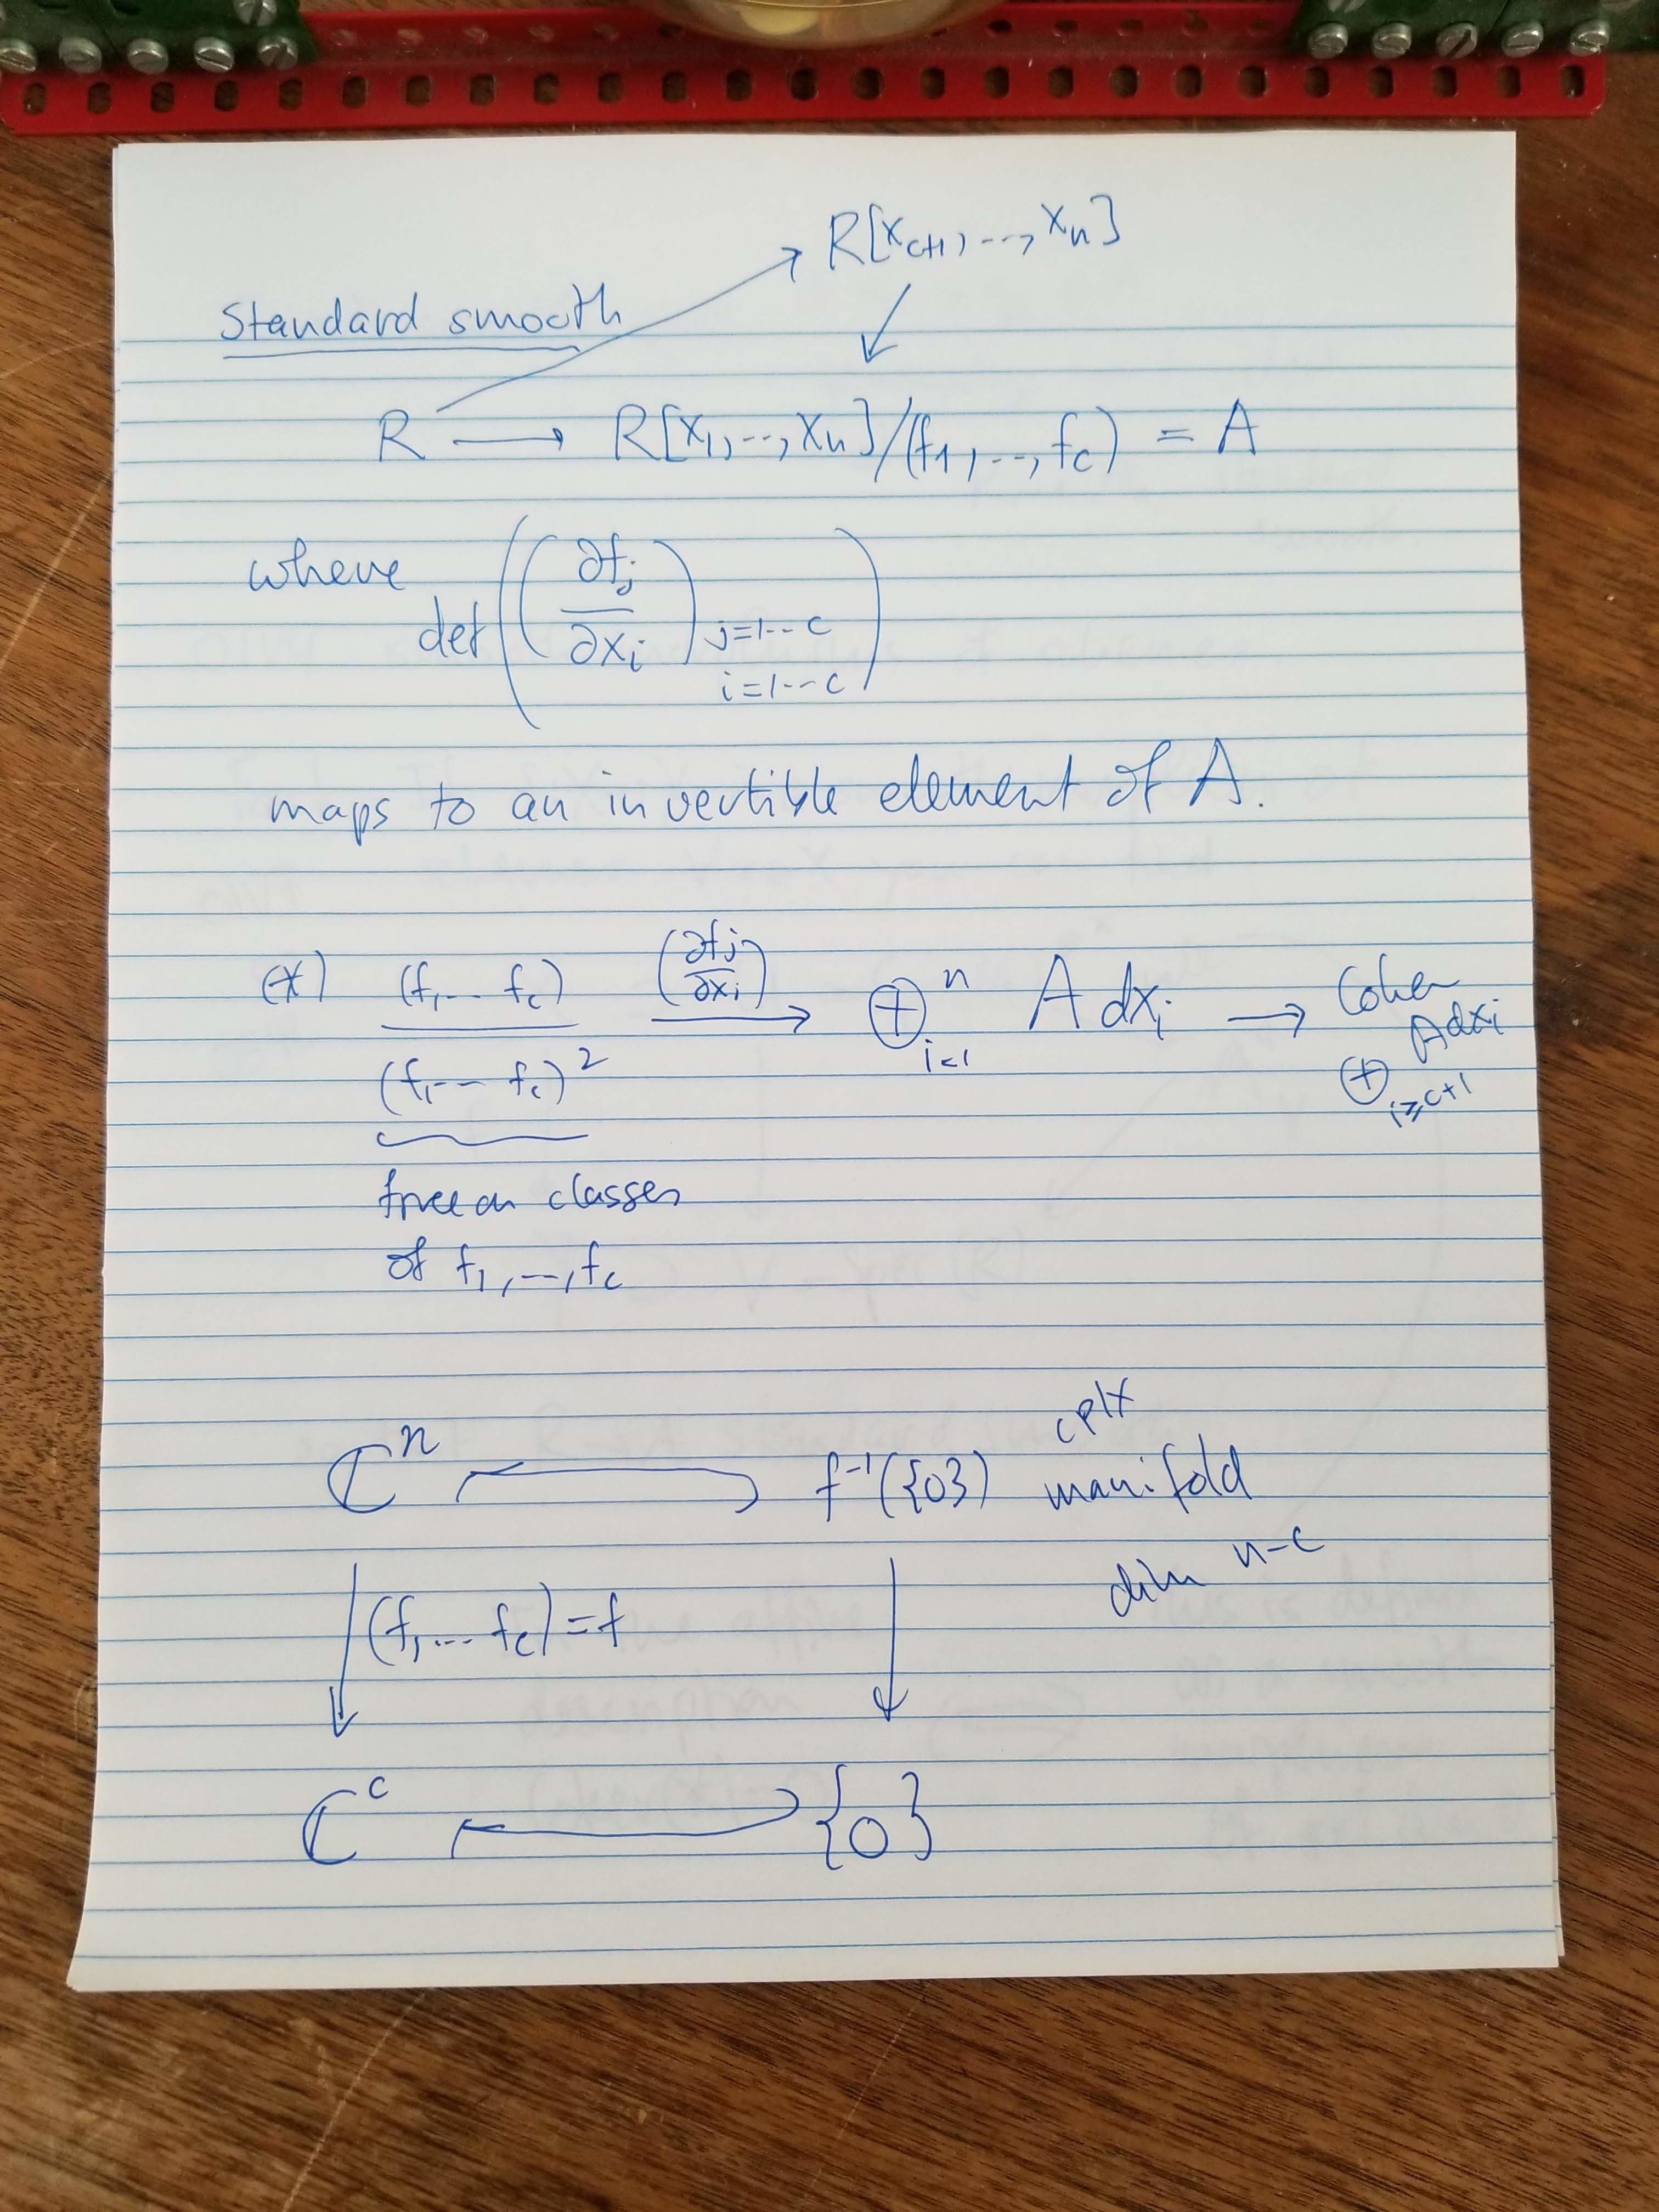 R[x_{c+1}, ..., x_n]
Standard smooth
R → R[x_1, .., x_n]/(f_1, .., f_c) = A
where det((∂f_j/∂x_i)_{j=1..c, i=1..c})
maps to an invertible element of A.
(*) (f_1 ... f_c)/(f_1 ... f_c)^2 →^{(∂f_j/∂x_i)} ⊕_{i=1}^n A dx_i → Coker
⊕_{i≥c+1} A dx_i
free on classes
of f_1, ..., f_c
ℂ^n ↩ f^{-1}({0}) cplx manifold
dim n-c
(f_1 ... f_c) = f
ℂ^c ↩ {0}